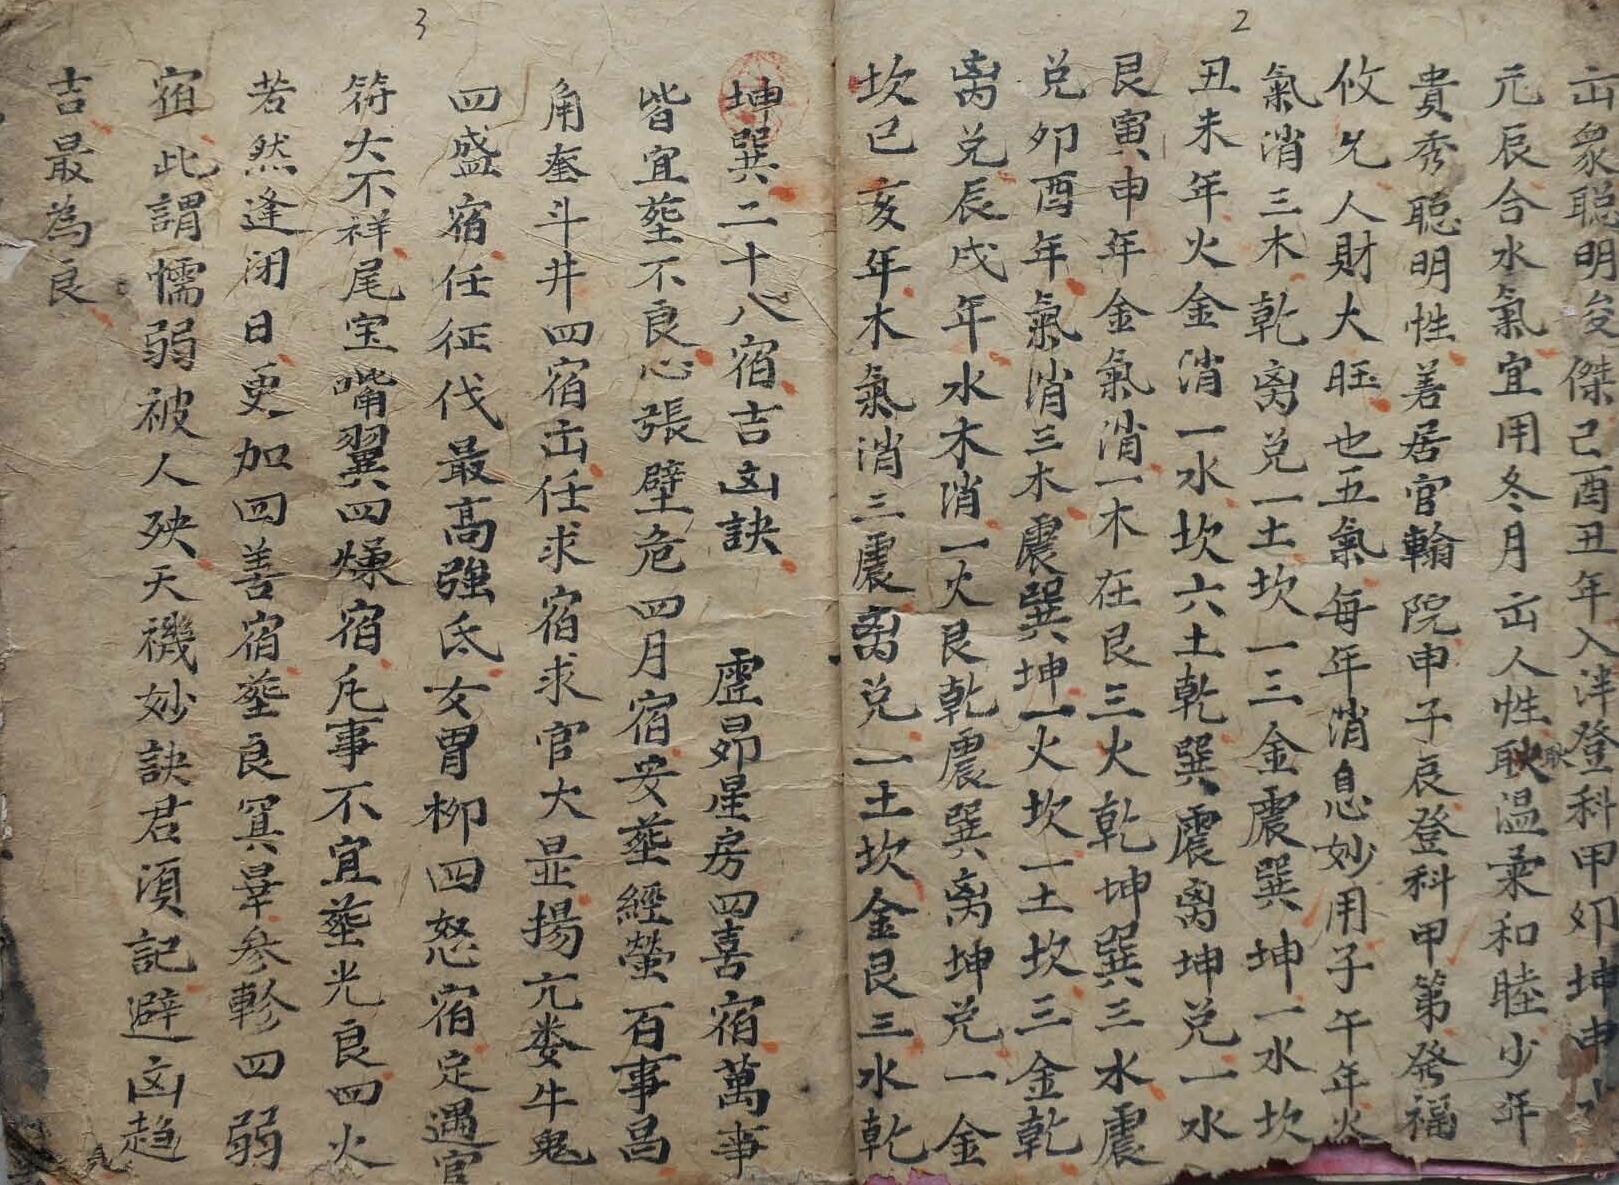 2
出衆聰明俊傑己酉丑年入泮登科甲卯坤申
元辰合水氣宜用冬月出人性耿温柔和睦少年
耿
貴秀聡明性善居官翰院申子辰登科甲第発福
攸久人財大旺也五氣每年消息妙用子午年火
氣消三木乾离兑一土坎一三金震巽坤一水坎
丑未年火金消一水坎六土乾巽震离坤兑一水
艮寅申年金氣消一木在艮三火乾坤巽三水震
兑卯酉年氣消三木震巽坤一火坎一土坎三金乾
离兑辰戌年水木消一火艮乾震巽离坤兑一金
坎己亥年木氣消三震离兑一土坎金艮三水乾
3
坤巽二十八宿吉凶訣 虚昴星房四喜宿萬事
皆宜塟不良心張壁危四月宿安塟經營百事昌
角奎斗井四宿出任求宿求官大显揚亢娄牛鬼
四盛宿任征伐最高強氐女胃柳四怒宿定遇官
符大不祥尾宝嘴翼四爍宿凡事不宜塟光良四火
若然逢闭日更加四善宿塟良冥畢参軫四弱
宿此謂懦弱被人殃天機妙訣君須記避凶趋
吉最為良